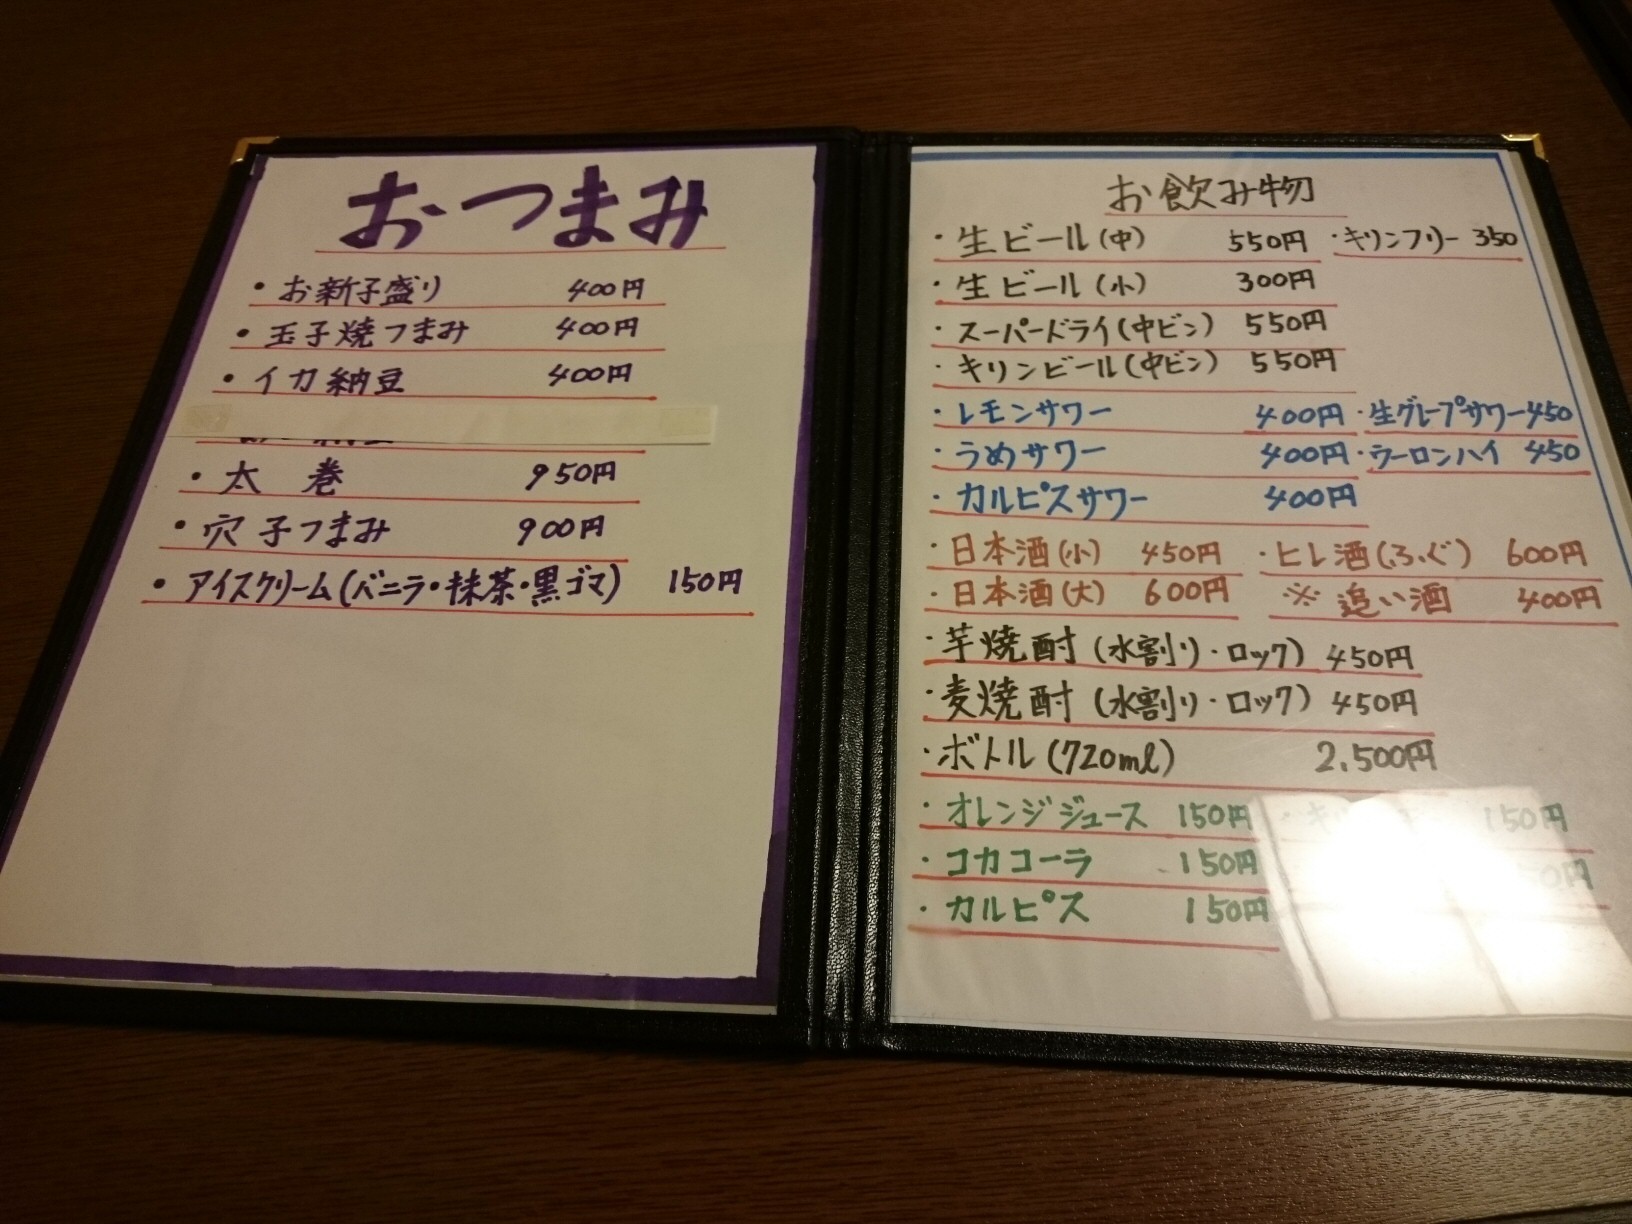 おつまみ
・お新子盛り 400円
・玉子焼つまみ 400円
・イカ納豆 400円
・太巻 950円
・穴子つまみ 900円
・アイスクリーム(バニラ・抹茶・黒ゴマ) 150円
お飲み物
・生ビール(中) 550円 ・キリンフリー 350
・生ビール(小) 300円
・スーパードライ(中ビン) 550円
・キリンビール(中ビン) 550円
・レモンサワー 400円 ・生グレープサワー 450
・うめサワー 400円 ・ウーロンハイ 450
・カルピスサワー 400円
・日本酒(小) 450円 ・ヒレ酒(ふぐ) 600円
・日本酒(大) 600円 ※追い酒 400円
・芋焼酎(水割り・ロック) 450円
・麦焼酎(水割り・ロック) 450円
・ボトル(720ml) 2.500円
・オレンジジュース 150円 ・ 150円
・コカコーラ 150円
・カルピス 150円